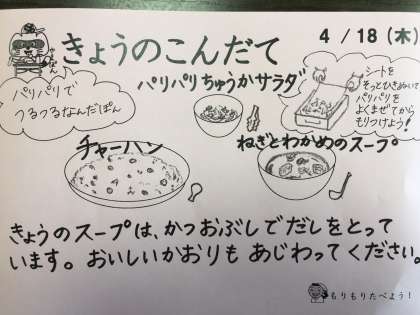 きょうのこんだて
4/18(木)
パリパリで
つるつるなんだぽん
パリパリちゅうかサラダ
シートを
そっとひきぬいて
パリパリを
よくまぜてから
もりつけよう!
チャーハン
ねぎとわかめのスープ
きょうのスープは、かつおぶしでだしをとって
います。おいしいかおりも あじわってください。
もりもりたべよう!